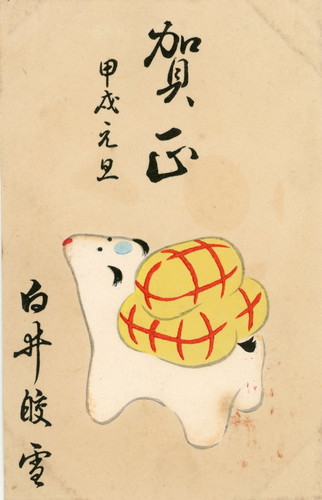 賀正
甲戌元旦
白井皎雪